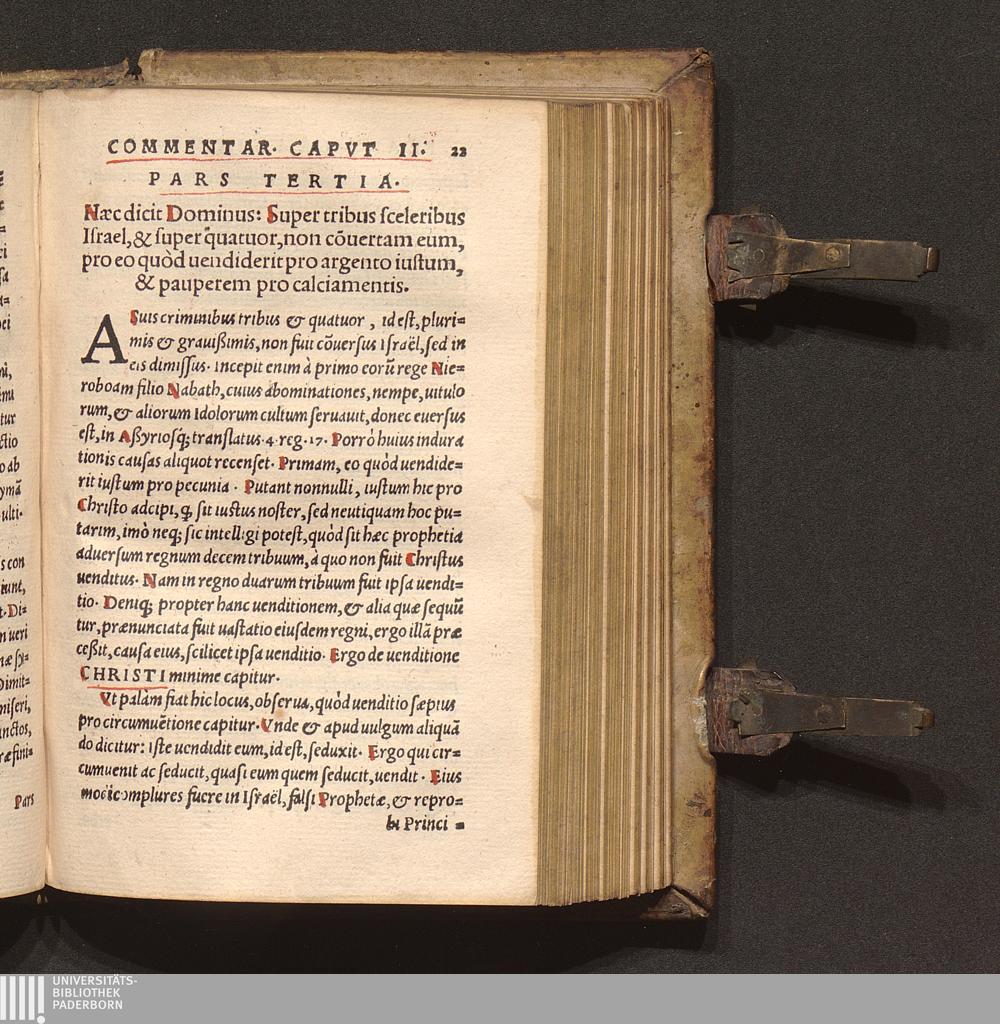 COMMENTAR. CAPVT II. 22
PARS TERTIA.
Næc dicit Dominus: Super tribus sceleribus
Israel, & super quatuor, non cōuertam eum,
pro eo quòd uendiderit pro argento iustum,
& pauperem pro calciamentis.
A Suis criminibus tribus & quatuor, id est, pluri=
mis & grauißimis, non fuit cōuersus Israël, sed in
eis dimissus. Incepit enim à primo eorū rege Nie=
roboam filio Nabath, cuius abominationes, nempe, uitulo
rum, & aliorum Idolorum cultum seruauit, donec euersus
est, in Aßyriosq́; translatus. 4. reg. 17. Porrò huius indura
tionis causas aliquot recenset. Primam, eo quòd uendide=
rit iustum pro pecunia. Putant nonnulli, iustum hic pro
Christo adcipi, q̃ sit iustus noster, sed neutiquam hoc pu=
tarim, imò neq; sic intelligi potest, quòd sit hæc prophetia
aduersum regnum decem tribuum, à quo non fuit Christus
uenditus. Nam in regno duarum tribuum fuit ipsa uendi=
tio. Deniq; propter hanc uenditionem, & alia quæ sequū
tur, prænunciata fuit uastatio eiusdem regni, ergo illā præ
ceßit, causa eius, scilicet ipsa uenditio. Ergo de uenditione
CHRISTI minime capitur.
Vt palàm fiat hic locus, obserua, quòd uenditio sæpius
pro circumuētione capitur. Vnde & apud uulgum aliquā
do dicitur: Iste uendidit eum, id est, seduxit. Ergo qui cir=
cumuenit ac seducit, quasi eum quem seducit, uendit. Eius
modi complures fuere in Israël, falsi Prophetæ, & repro=
bi Princi =
ei
sa
ctio
o ab
ymā
ulti.
s con
iunt,
t. Di=
n ueri
Dimit=
miseri,
ræfini=
Pars
UNIVERSITÄTS-
BIBLIOTHEK
PADERBORN